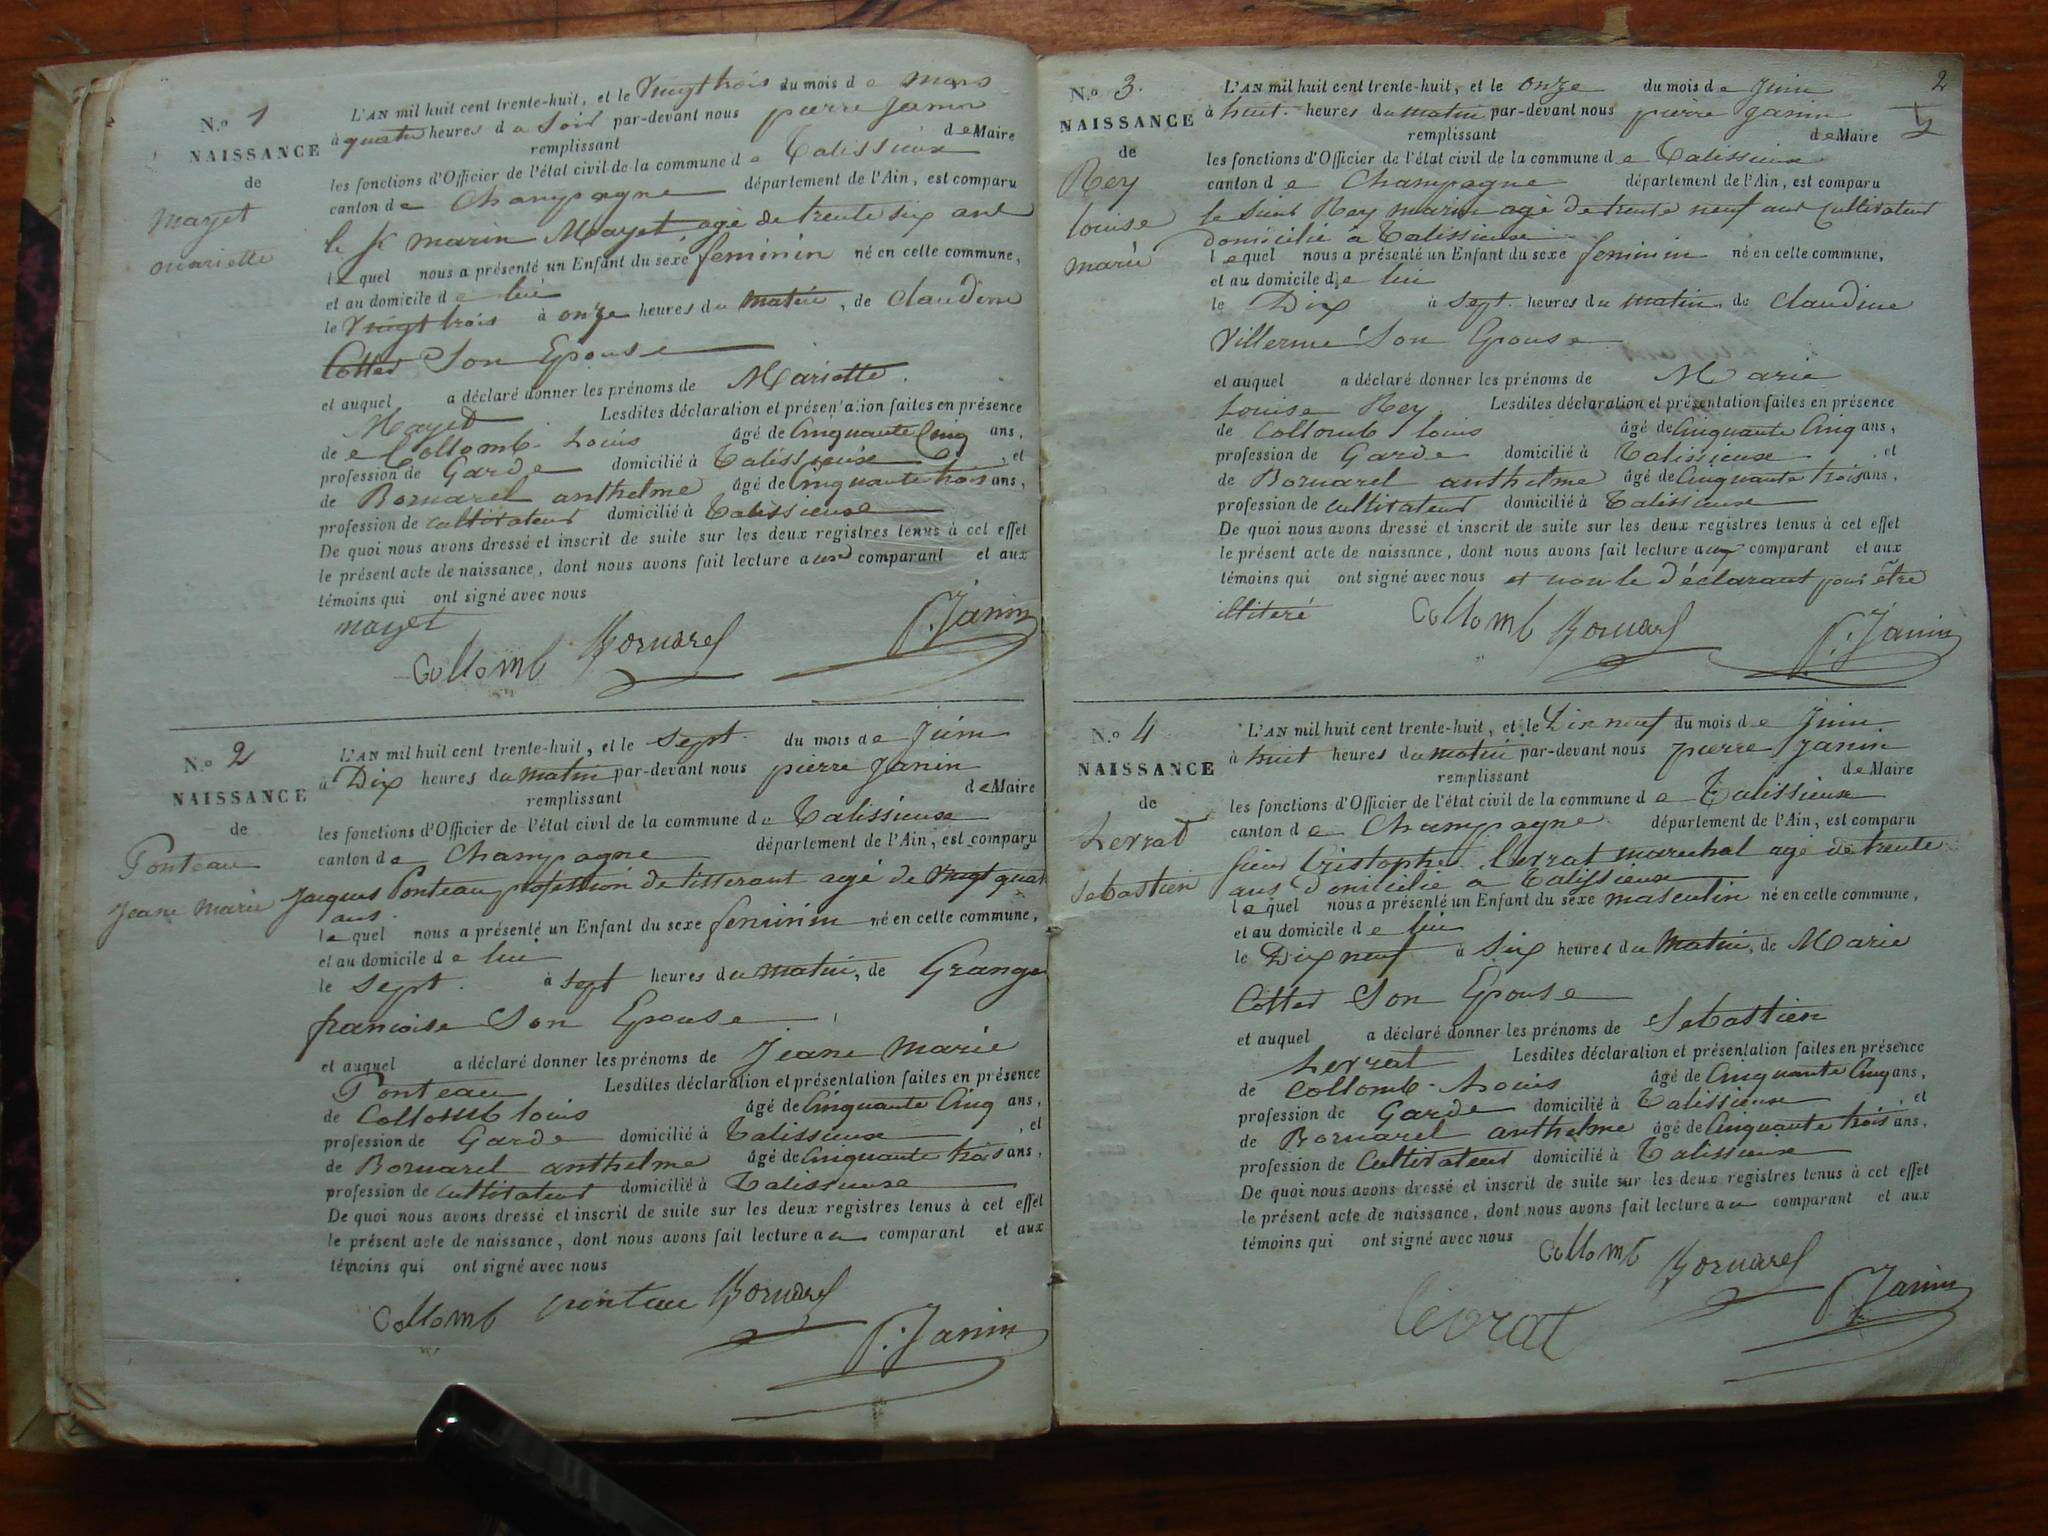 N.o 1
NAISSANCE
de
Mayet
Mariette
L'AN mil huit cent trente-huit, et le Vingt trois du mois de mars
à quatre heures du Soir par-devant nous pierre Janin
remplissant de Maire
les fonctions d'Officier de l'état civil de la commune de Talissieux
canton de Champagne département de l'Ain, est comparu
le Sr marin Mayet agé de trente six ans
lequel nous a présenté un Enfant du sexe feminin né en cette commune,
et au domicile de lui
le Vingt trois à onze heures du matin, de Claudine
Cottet Son Epouse
et auquel a déclaré donner les prénoms de Mariette
Mayet Lesdites déclaration et présentation faites en présence
de Collomb Louis âgé de Cinquante Cinq ans,
profession de Garde domicilié à Talissieux, et
de Bornarel anthelme âgé de Cinquante trois ans,
profession de cultivateur domicilié à Talissieux
De quoi nous avons dressé et inscrit de suite sur les deux registres tenus à cet effet
le présent acte de naissance, dont nous avons fait lecture aux comparant et aux
témoins qui ont signé avec nous
mayet
Collomb Bornarel P. Janin
N.o 2
NAISSANCE
de
Ponteau
Jeane Marie
L'AN mil huit cent trente-huit, et le Sept du mois de Juin
à Dix heures du matin par-devant nous pierre Janin
remplissant de Maire
les fonctions d'Officier de l'état civil de la commune de Talissieux
canton de Champagne département de l'Ain, est comparu
Jacques Ponteau profession de tisserant agé de Vingt quat
ans.
lequel nous a présenté un Enfant du sexe feminin né en cette commune,
et au domicile de lui
le Sept. à sept heures du matin, de Grange
francoise Son Epouse
et auquel a déclaré donner les prénoms de Jeane Marie
Ponteau Lesdites déclaration et présentation faites en présence
de Collomb louis âgé de Cinquante Cinq ans,
profession de Garde domicilié à Talissieux, et
de Bornarel anthelme âgé de Cinquante trois ans,
profession de cultivateur domicilié à Talissieux
De quoi nous avons dressé et inscrit de suite sur les deux registres tenus à cet effet
le présent acte de naissance, dont nous avons fait lecture au comparant et aux
témoins qui ont signé avec nous
Collomb pontau Bornarel
P. Janin
2
N.o 3.
NAISSANCE
de
Rey
louise
marie
L'AN mil huit cent trente-huit, et le onze du mois de Juin
à huit heures du matin par-devant nous pierre Janin
remplissant de Maire
les fonctions d'Officier de l'état civil de la commune de Talissieux
canton de Champagne département de l'Ain, est comparu
le Sieur Rey marin agé de trente neuf ans Cultivateur
domicilié à Talissieux
lequel nous a présenté un Enfant du sexe feminin né en cette commune,
et au domicile de lui
le Dix à sept heures du matin, de Claudine
Villerme Son Epouse
et auquel a déclaré donner les prénoms de Marie
Louise Rey Lesdites déclaration et présentation faites en présence
de Collomb louis âgé de Cinquante Cinq ans,
profession de Garde domicilié à Talissieux, et
de Bornarel anthelme âgé de Cinquante trois ans,
profession de cultivateur domicilié à Talissieux
De quoi nous avons dressé et inscrit de suite sur les deux registres tenus à cet effet
le présent acte de naissance, dont nous avons fait lecture aux comparant et aux
témoins qui ont signé avec nous et non le déclarant pour être
illiteré
Collomb Bornarel P. Janin
N.o 4
NAISSANCE
de
Levrat
Sebastien
L'AN mil huit cent trente-huit, et le Dix neuf du mois de Juin
à huit heures du matin par-devant nous pierre Janin
remplissant de Maire
les fonctions d'Officier de l'état civil de la commune de Talissieux
canton de Champagne département de l'Ain, est comparu
Sieur Cristophe Levrat marechal agé de trente
ans domicilié à Talissieux
lequel nous a présenté un Enfant du sexe masculin né en cette commune,
et au domicile de lui
le Dix neuf à Six heures du matin, de Marie
Cottet Son Epouse
et auquel a déclaré donner les prénoms de Sebastien
Levrat Lesdites déclaration et présentation faites en présence
de Collomb Louis âgé de Cinquante Cinq ans,
profession de Garde domicilié à Talissieux, et
de Bornarel anthelme âgé de Cinquante trois ans,
profession de Cultivateur domicilié à Talissieux
De quoi nous avons dressé et inscrit de suite sur les deux registres tenus à cet effet
le présent acte de naissance, dont nous avons fait lecture au comparant et aux
témoins qui ont signé avec nous
Collomb Bornarel
levrat P. Janin